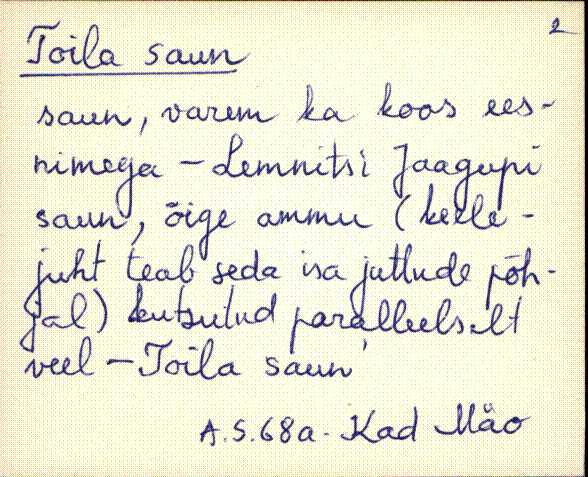 2
Toila saun
saun, varem ka koos ees-
nimega - Lemnitsi Jaagupi
saun, õige ammu (keele-
juht teab seda isa juttude põh-
jal) kutsutud paralleelselt
veel - Toila saun
A.S. 68a. Kad Mäo